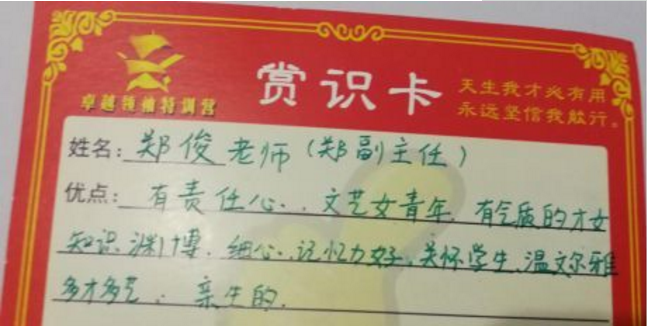 卓越领袖特训营
赏识卡
天生我才必有用
永远坚信我能行。
姓名：郑俊老师（郑副主任）
优点：有责任心、文艺女青年、有气质的才女
知识渊博、细心、记忆力好、关怀学生、温文尔雅
多才多艺、亲生的.